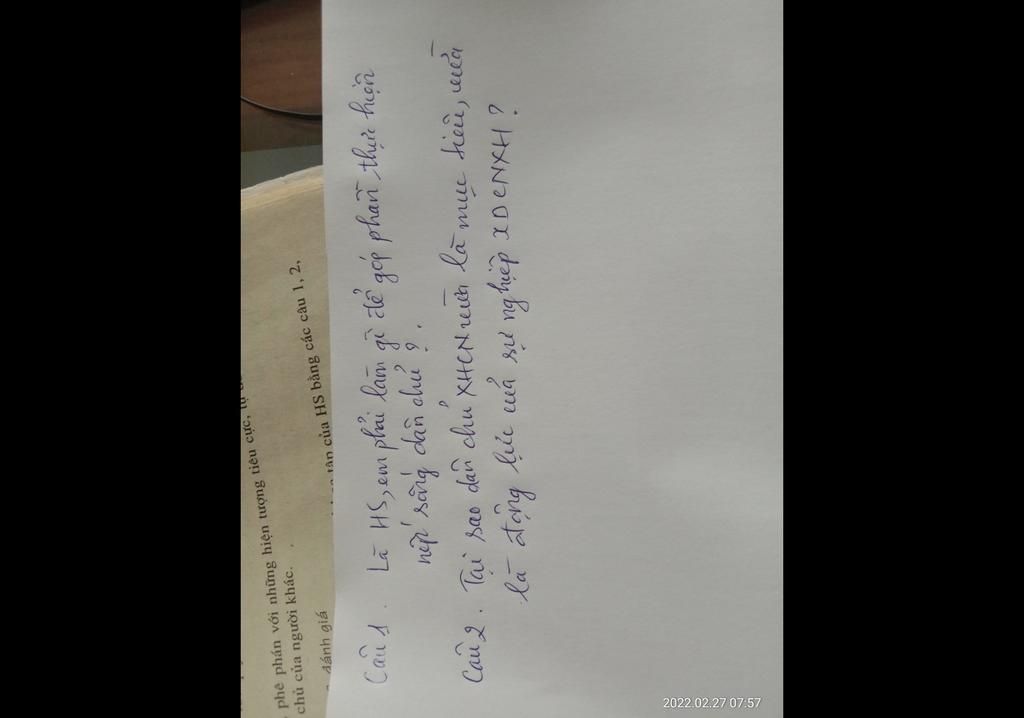 phê phán với những hiện tượng tiêu cực,
chủ của người khác.
đánh giá
của HS bằng các câu 1, 2,
Câu 1. Là HS, em phải làm gì để góp phần thực hiện
nếp sống dân chủ?.
Câu 2. Tại sao dân chủ XHCN vừa là mục tiêu, vừa
là động lực của sự nghiệp XDCNXH?
2022.02.27 07:57